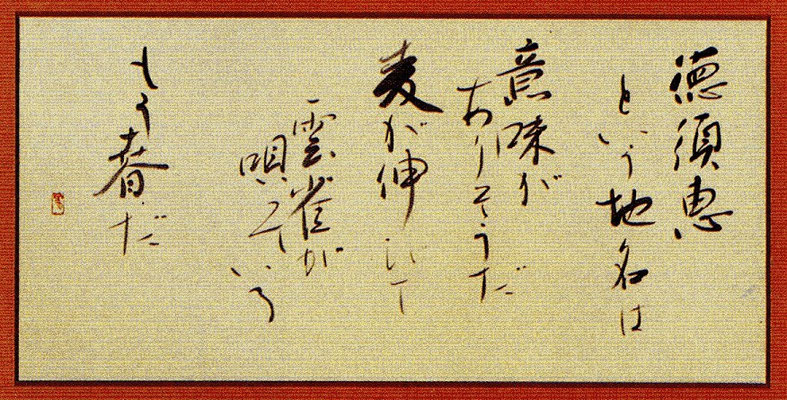 徳須恵
という地名は
意味が
ありそうだ
麦が伸びて
雲雀が
唄っている
もう春だ